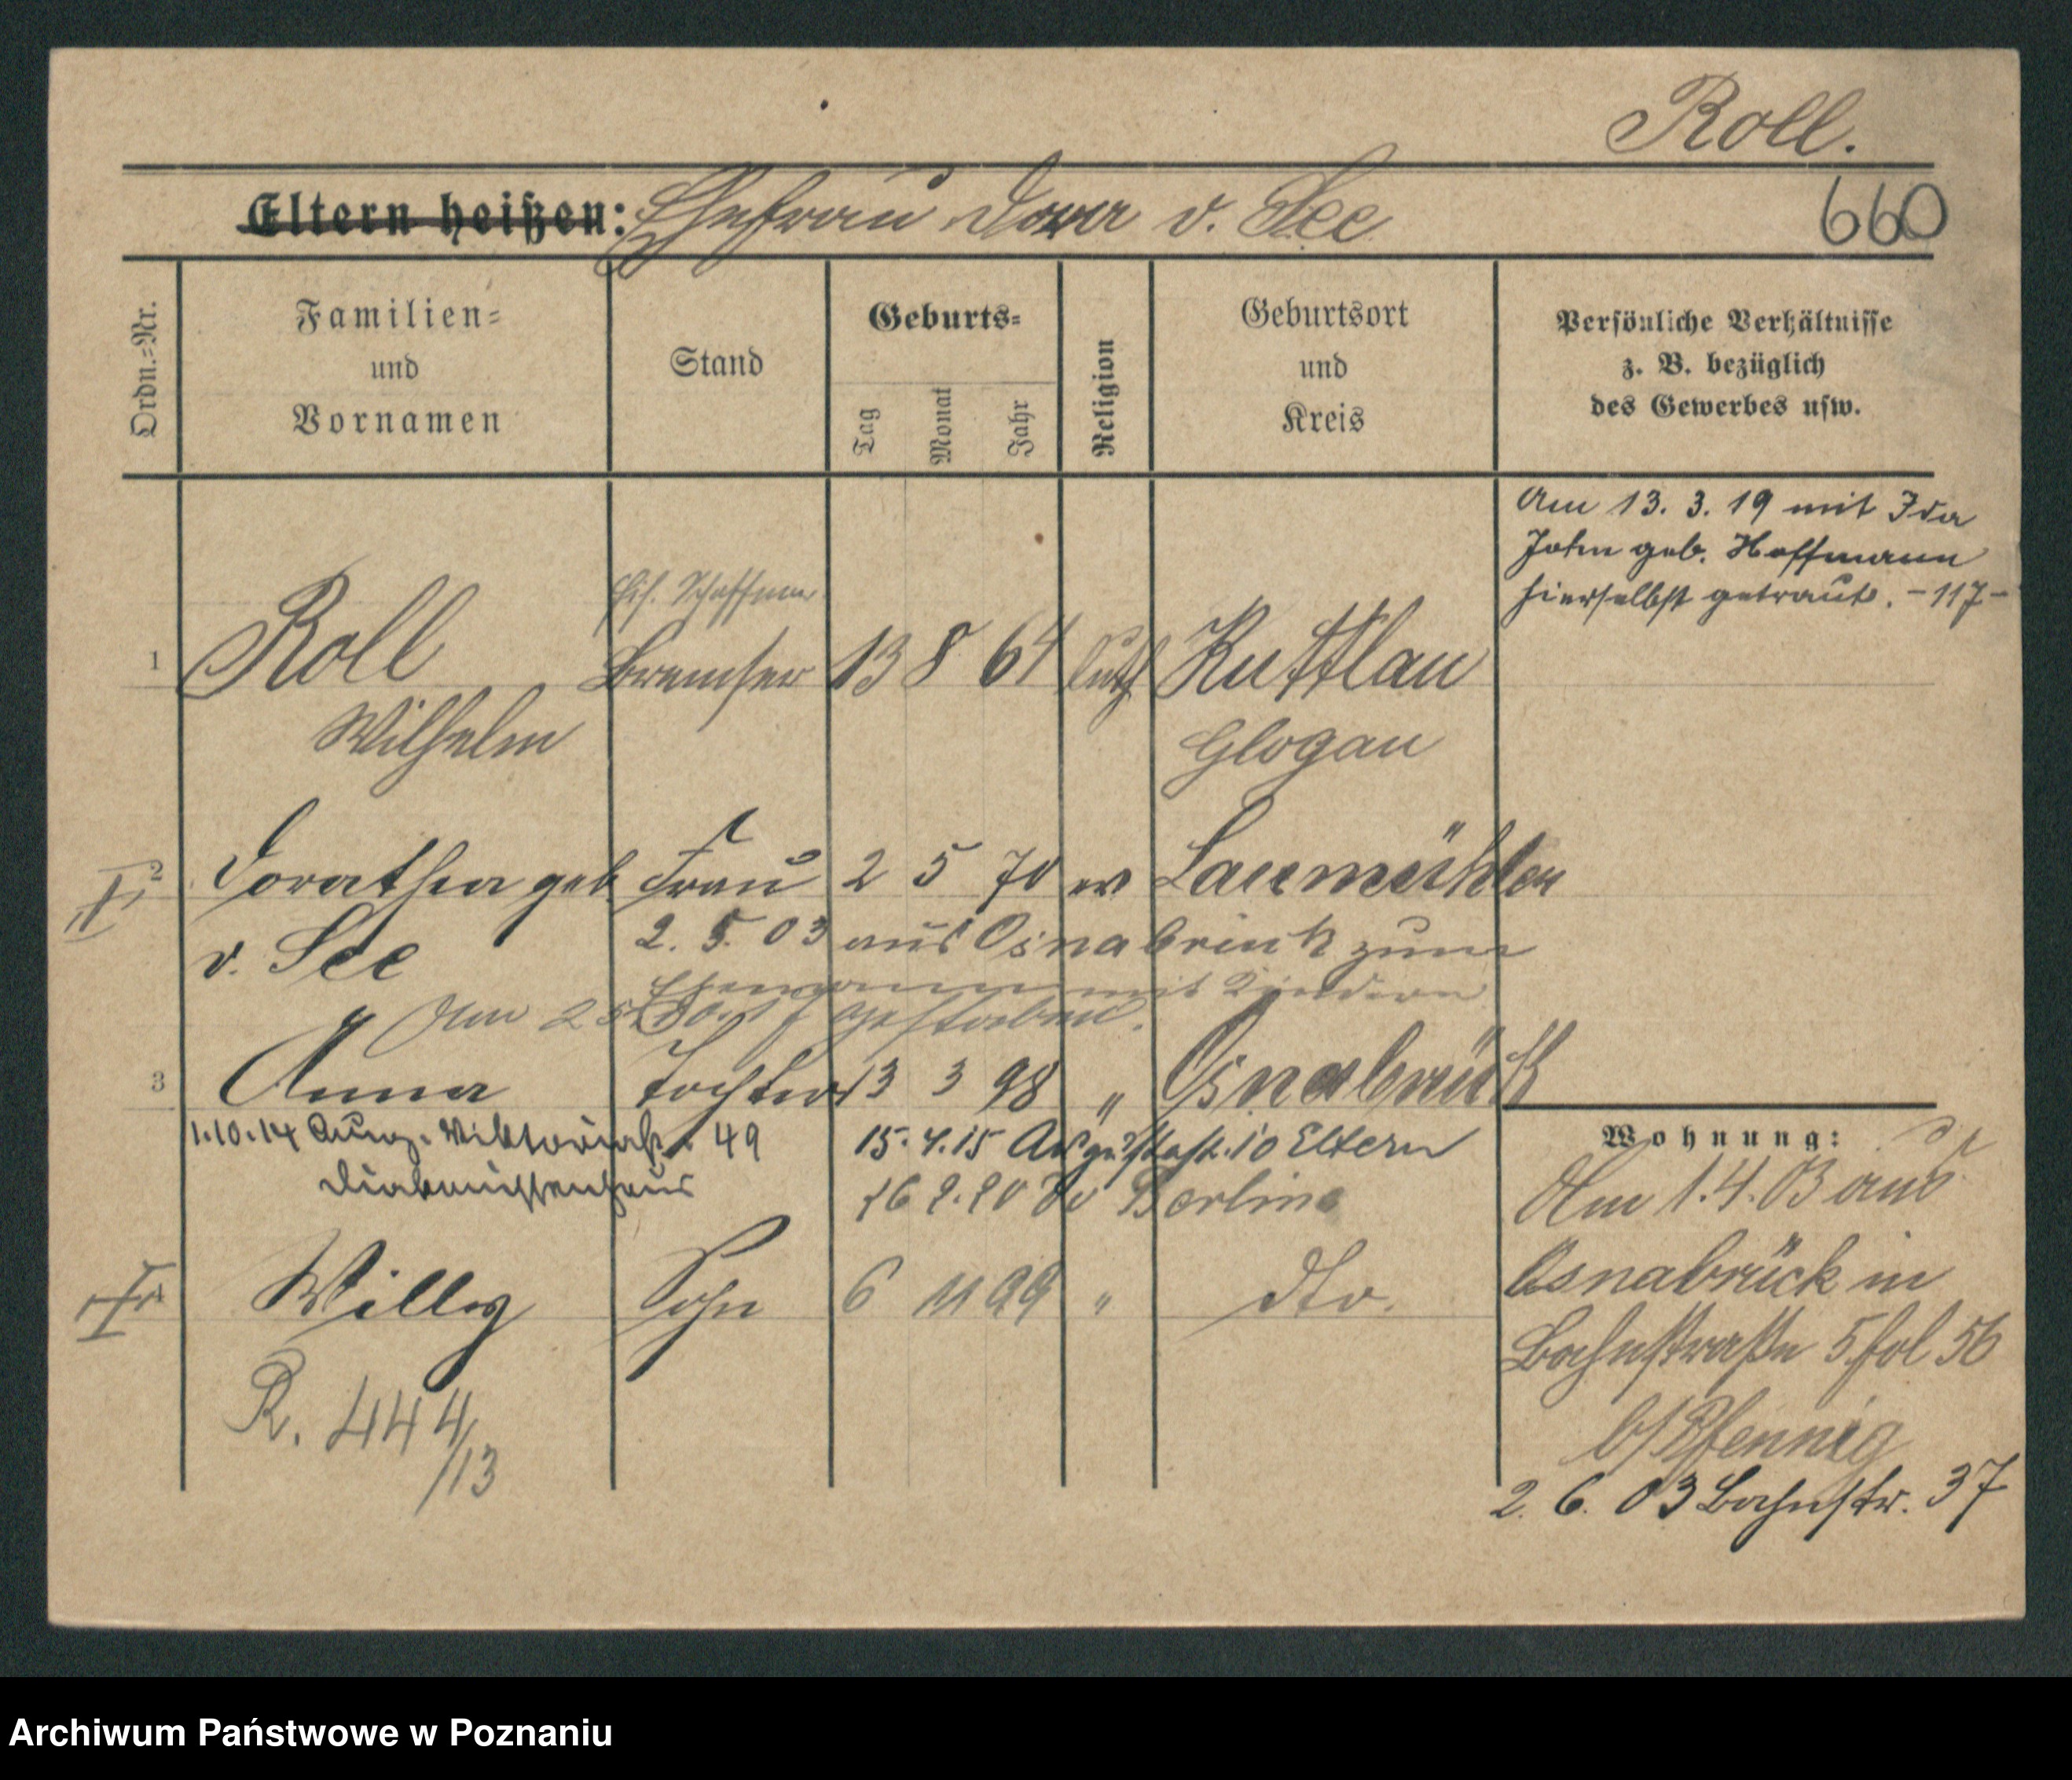 Roll.
Eltern heißen: Ehefrau Dora v. See
660
Ordn.=Nr.
Familien=
und
Vornamen
Stand
Geburts=
Tag
Monat
Jahr
Religion
Geburtsort
und
Kreis
Persönliche Verhältnisse
z. B. bezüglich
des Gewerbes usw.
Am 13. 3. 19 mit Ida
John geb. Hoffmann
hierselbst getraut. - 117 -
Eis. Schaffner
1 Roll Bremser 13 8 64 luth Kuttlau
Wilhelm Glogau
2 Dorathea geb Frau 2 5 70 ev Laumühlen
v. See 2. 5. 03 aus Osnabrück zum
Ehemann mit Kindern
Am gestorben.
3 Anna Tochter 13 3 98 " Osnabrück
1.10.14 Viktoriastr. 49 15.4.15 10 Eltern
Diakonissenhaus Berlin
4 Willy Sohn 6 11 99 " dto.
R. 444/13
Wohnung:
Am 1.4.03 aus
Osnabrück in
Bahnstraße 5 fol 56
b/Pfennig
2. 6. 03 Bahnstr. 37
Archiwum Państwowe w Poznaniu